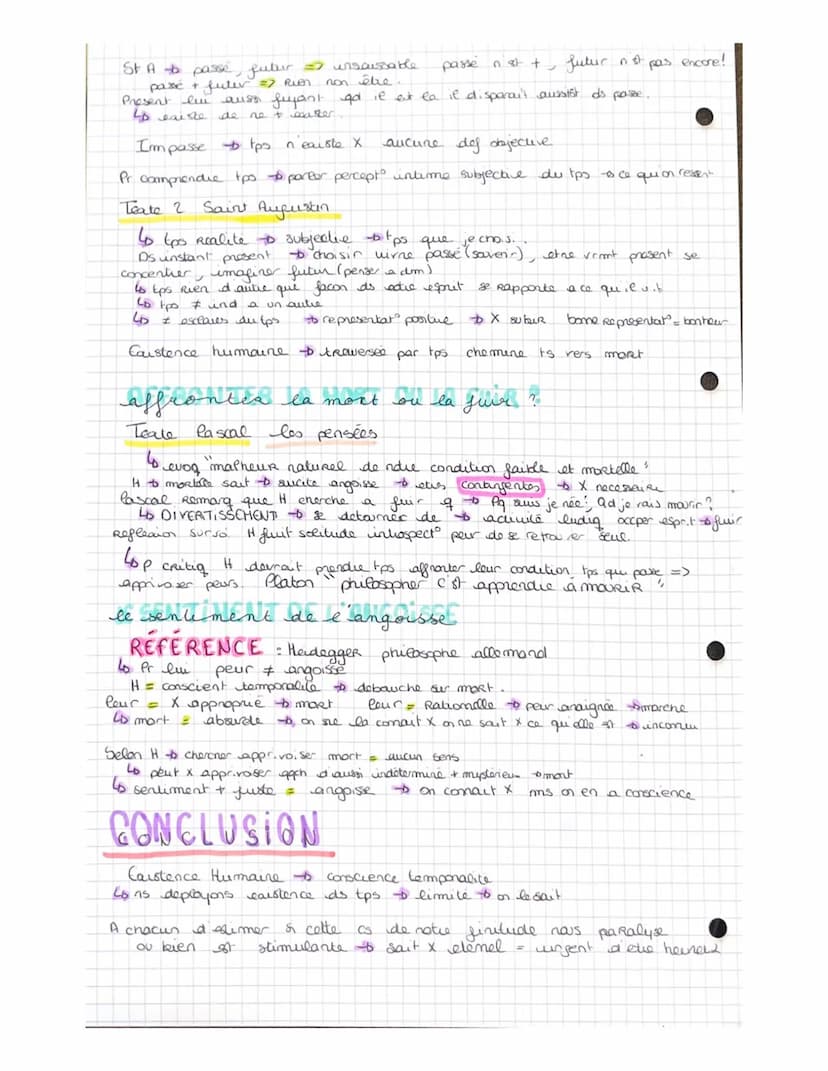 St A → passé, futur => insaisissable passé n'est +, futur n'est pas encore!
passé + futur => Rien non être.
Présent lui aussi fuyant qd il est là il disparait aussitôt ds passé.
↳ existe de ne + exister.
Impasse → tps n'existe X aucune def objective
Pr comprendre tps → partir percept° intime subjective du tps → ce qu'on ressent
Texte 2 Saint Augustin
↳ tps réalité → subjective → tps que je chois..
Ds instant présent → choisir vivre passé (souvenir), etre vrmt présent se
concentrer, imaginer futur (penser a dm)
↳ tps Rien d'autre que façon ds notre esprit se rapporte a ce qu'il vit
↳ tps ≠ ind a un autre
↳ ≠ esclaves du tps → représentat° positive → X subir bonne Représentat° = bonheur
Existence humaine → traversée par tps chemine ts vers mort
affronter la mort ou la fuir ?
Texte Pascal les pensées
↳ evoq "malheur naturel de notre condition faible et mortelle"
H → mortel sait → suscite angoisse → etres contingentes → X nécessaire
Pascal Remarq que H cherche a fuir q → Pq suis je née?, Qd je vais mourir?
↳ DIVERTISSEMENT → se détourner de → activité ludiq occper esprit → fuir
Reflexion sur soi H fuit solitude introspect° peur de se retrouver seul.
↳ P critiq H devrait prendre tps affronter leur condition, tps qui passe =>
apprivoiser peurs. Platon "philosopher c'est apprendre à mourir"
le sentiment de l'angoisse
RÉFÉRENCE : Heidegger philosophe allemand
↳ Pr lui peur ≠ angoisse
H = conscient temporalité → débouche sur mort.
Peur = X approprié → mort Peur = Rationnelle → peur araignée → marche
↳ mort = absurde → on ne la connait X on ne sait X ce qu'elle est → inconnu
Selon H → chercher apprivoiser mort = aucun sens
↳ peut X apprivoiser qqch d'aussi indéterminé + mystérieux → mort
↳ sentiment + juste = angoisse → on connait X ms on en a conscience
CONCLUSION
Existence Humaine → conscience temporalité
↳ ns deployons existence ds tps → limité → on le sait
A chacun d'estimer si cette cs de notre finitude nous paralyse
ou bien est stimulante → sait X éternel = urgent d'être heureux